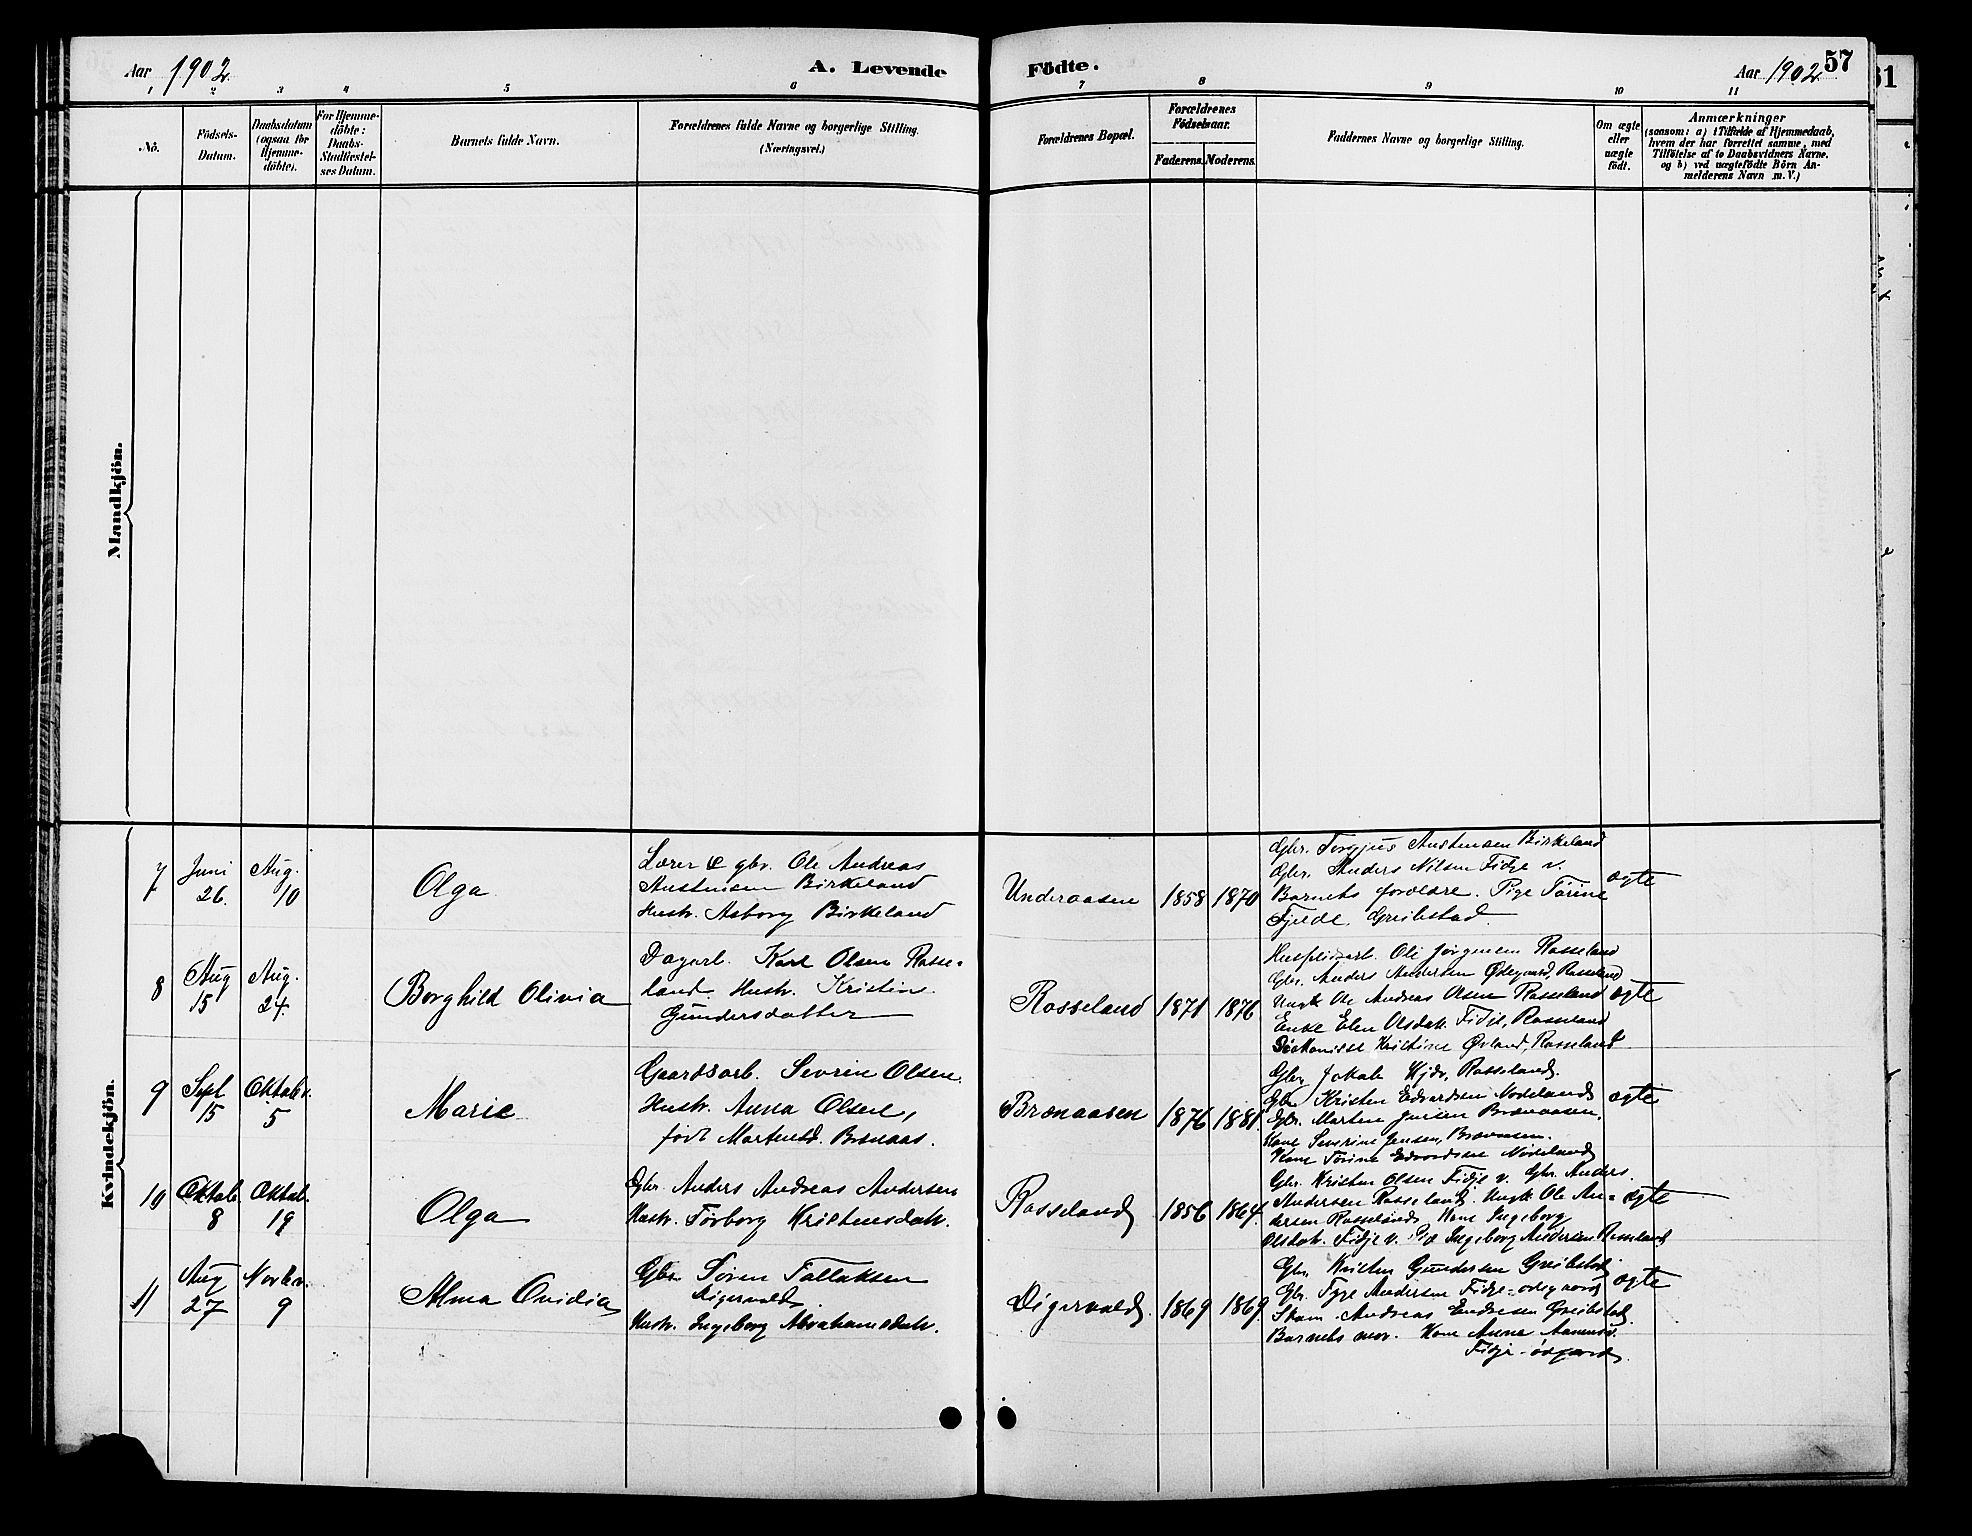 Aar 1902
A. Levende Fødte.
Aar 1902
57
1 2 3 4 5 6 7 8 9 10 11
No.
Födsels-
Datum.
Daabsdatum
(ogsaa for
Hjemme-
döbte).
For Hjemme-
döbte:
Daabs-
Stadfæstel-
ses Datum.
Barnets fulde Navn.
Forældrenes fulde Navne og borgerlige Stilling.
(Næringsvei.)
Forældrenes Bopæl.
Forældrenes
Födselsaar.
Faderens.
Moderens.
Faddernes Navne og borgerlige Stilling.
Om ægte
eller
uægte
födt.
Anmærkninger
(saasom: a) i Tilfælde af Hjemmedaab,
hvem der har forrettet samme, med
Tilföielse af to Daabsvidners Navne,
og b) ved uægtefödte Börn An-
melderens Navn m. V.)
Mandkjön.
Kvindekjön.
7
Juni
26.
Aug.
10
Olga
Lærer & gbr. Ole Andreas
Austensen Birkeland
Hustr. Asborg Birkeland
Underaasen
1858
1870
Gbr. Torgjus Austensen Birkeland
Gbr. Anders Nilsen Fidje v.
Barnets forældre. Pige Tørine
Fjelde, Greibstad
ægte
8
Aug
15
Aug.
24.
Borghild Olivia
Dagarb. Karl Olsen Rosse-
land. Hustr. Kristine
Gundersdatter
Rosseland
1871
1876
Ole Jørgensen Rosseland
Gbr. Anders Andersen Ødegaard, Rosseland
Ungk Ole Andreas Olsen Rosseland
Enke Elen Olsdatr. Fidje, Rosseland
Kristine Øvland, Rosseland
ægte
9
Sept
15
Oktobr.
5
Marie
Gaardsarb. Sevrin Olsen.
Hustr. Anna Olsen,
født Martensd. Brenaas.
Brænaasen
1876
1881.
Gbr Jakob Rosseland.
Gbr Kristen Edvardsen Nodeland
Gbr. Marten Jensen Brænaasen,
Kone Severine Jensen, Brænaasen.
Kone Tørine Edvardsen Nodeland
ægte
10
Oktob.
8
Oktob.
19
Olga
Gbr. Anders Andreas Andersen
Hustr. Tørborg Kristensdatr.
Rosseland
1856
1864.
Gbr. Kristen Olsen Fidje v. Gbr. Anders
Andersen Rosseland. Ungk Ole An-
dersen Rosseland, Kone Ingeborg
Olsdatr. Fidje v. Ingeborg Andersen Rosseland
ægte
11
Aug
27
Novbr.
9
Alma Ovidia
Gbr Søren Tallaksen
Digervald,
Hustr. Ingeborg Abrahamsdatr.
Digervald.
1869
1869.
Gbr. Kristen Gundersen Greibstad
Gbr. Andersen Fidje-ødegaard
Andreas Endresen Greibstad.
Barnets mor. Kone Anne
Fidje-ødegaard.
ægte